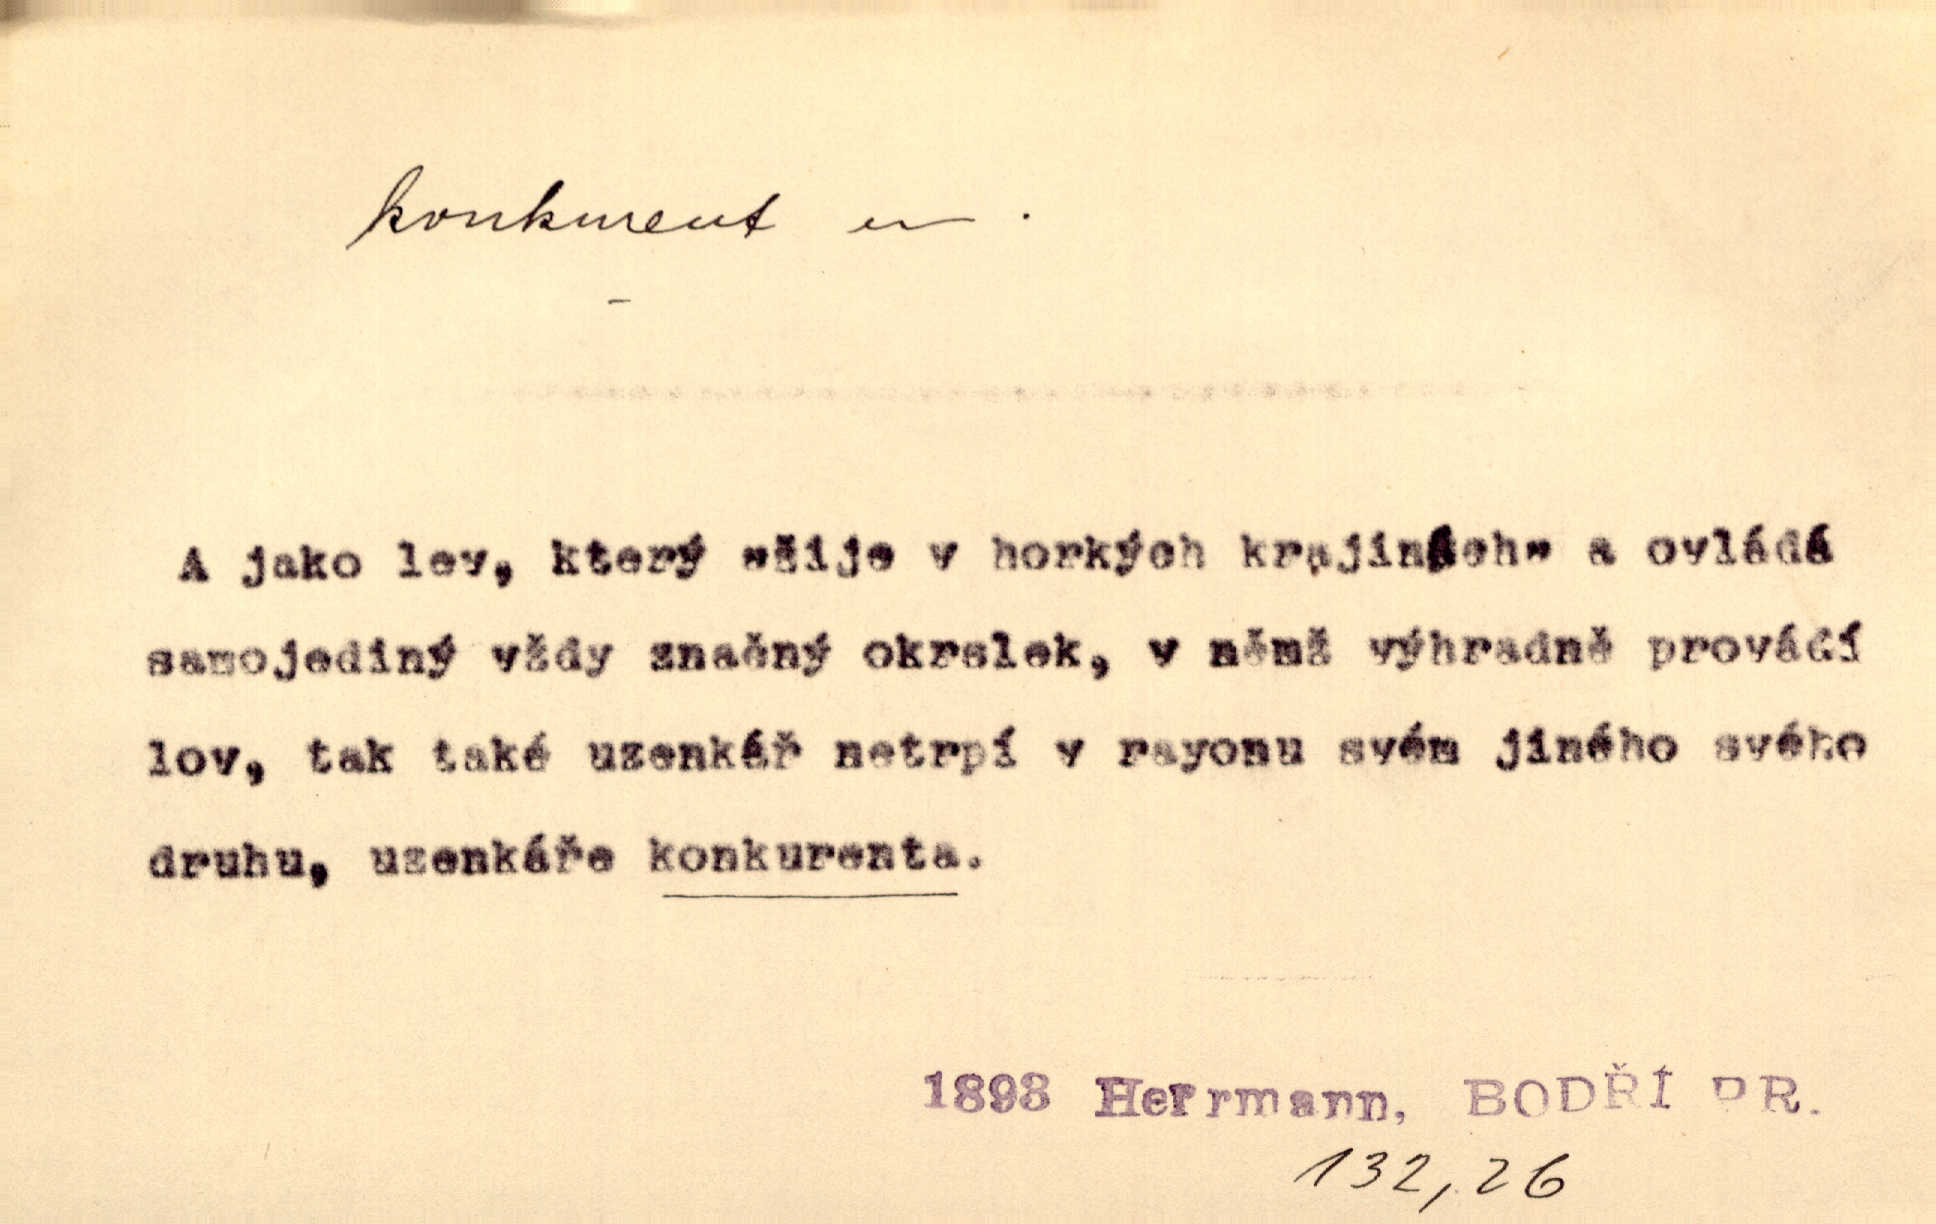 konkurent m.
A jako lev, který „žije v horkých krajinách“ a ovládá
samojediný vždy značný okrslek, v němž výhradně provádí
lov, tak také uzenkář netrpí v rayonu svém jiného svého
druhu, uzenkáře konkurenta.
1893 Herrmann, BODŘÍ PR.
132,26